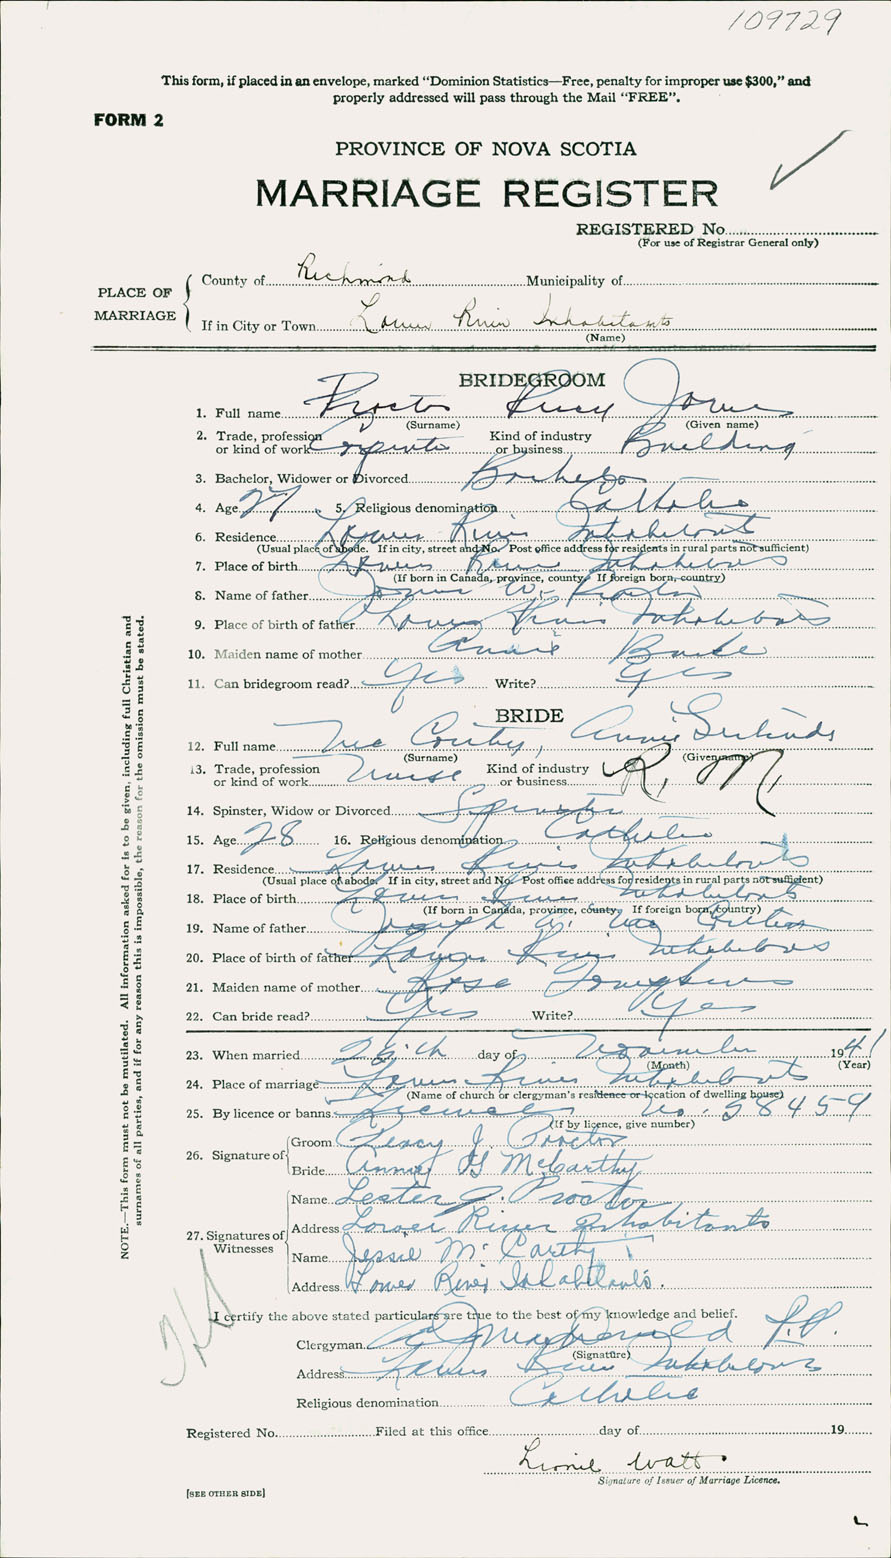 109729
This form, if placed in an envelope, marked “Dominion Statistics—Free, penalty for improper use $300,” and
properly addressed will pass through the Mail “FREE”.
FORM 2
PROVINCE OF NOVA SCOTIA
MARRIAGE REGISTER
REGISTERED No
(For use of Registrar General only)
PLACE OF MARRIAGE
County of Richmond Municipality of
If in City or Town Lower River Inhabitants
(Name)
BRIDEGROOM
1. Full name Proctor Percy James
(Surname) (Given name)
2. Trade, profession or kind of work Carpenter Kind of industry or business Building
3. Bachelor, Widower or Divorced Bachelor
4. Age 27 5. Religious denomination Catholic
6. Residence Lower River Inhabitants
(Usual place of abode. If in city, street and No. Post office address for residents in rural parts not sufficient)
7. Place of birth Lower River Inhabitants
(If born in Canada, province, county. If foreign born, country)
8. Name of father James W. Proctor
9. Place of birth of father Lower River Inhabitants
10. Maiden name of mother Annie Burke
11. Can bridegroom read? Yes Write? Yes
BRIDE
12. Full name McCarthy, Annie Gertrude
(Surname) (Given name)
13. Trade, profession or kind of work Nurse Kind of industry or business R. N.
14. Spinster, Widow or Divorced Spinster
15. Age 28 16. Religious denomination Catholic
17. Residence Lower River Inhabitants
(Usual place of abode. If in city, street and No. Post office address for residents in rural parts not sufficient)
18. Place of birth Lower River Inhabitants
(If born in Canada, province, county. If foreign born, country)
19. Name of father Joseph Mc
20. Place of birth of father Lower River Inhabitants
21. Maiden name of mother Rose
22. Can bride read? Yes Write? Yes
23. When married day of November 1941
(Month) (Year)
24. Place of marriage Lower River Inhabitants
(Name of church or clergyman's residence or location of dwelling house)
25. By licence or banns License No. 58459
(If by licence, give number)
26. Signature of
Groom Percy J. Proctor
Bride Annie G McCarthy
27. Signatures of Witnesses
Name Lester J. Proctor
Address Lower River Inhabitants
Name Jessie McCarthy
Address Lower River Inhabitants.
I certify the above stated particulars are true to the best of my knowledge and belief.
Clergyman MacDonald P.P.
(Signature)
Address Lower River Inhabitants
Religious denomination Catholic
Registered No. Filed at this office day of 19
Lionel Watt
Signature of Issuer of Marriage Licence.
[SEE OTHER SIDE]
NOTE.—This form must not be mutilated. All information asked for is to be given, including full Christian and
surnames of all parties, and if for any reason this is impossible, the reason for the omission must be stated.